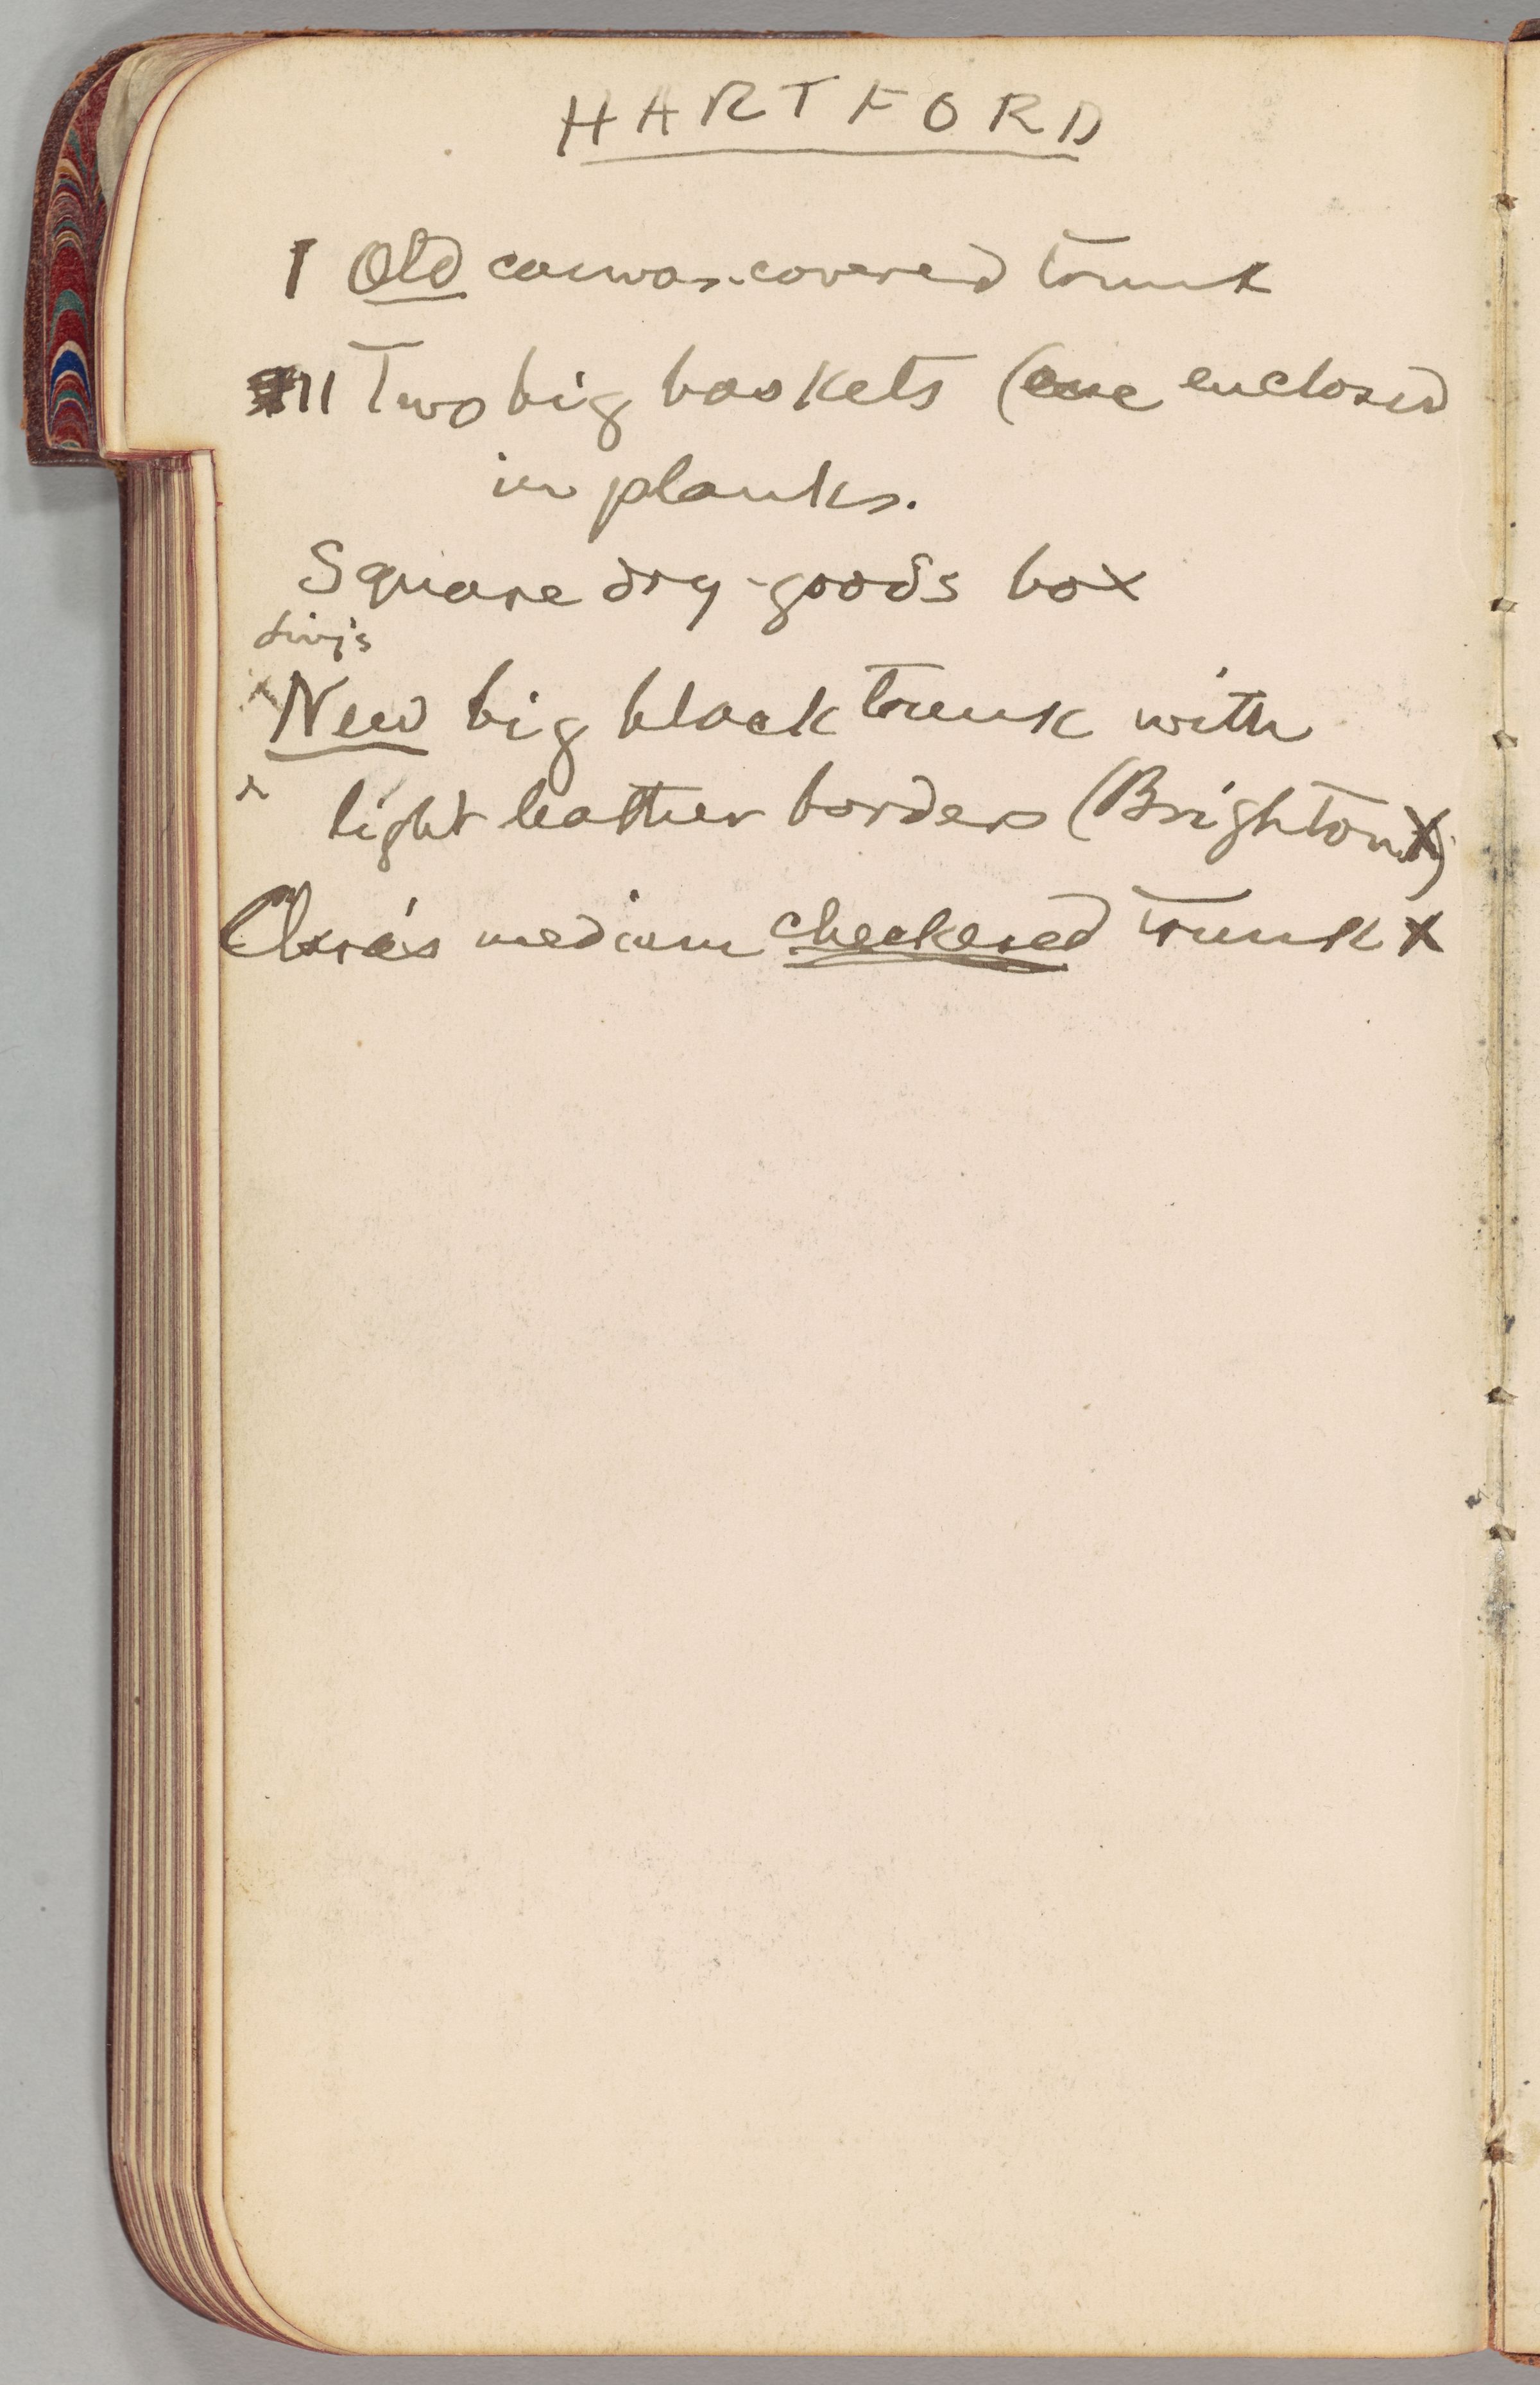 HARTFORD
1 Old canvas-covered trunk
11 Two big baskets (one enclosed
in planks.
Square dry-goods box
Livy's
x New big black trunk with
light leather borders (Brighton X)
Clara's medium checkered trunk X